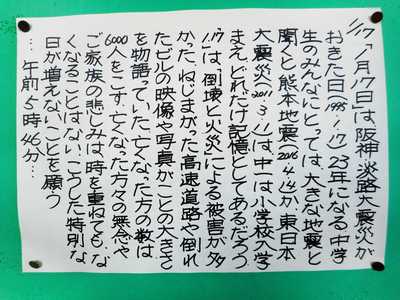 1/17「1月17日」は阪神淡路大震災が
おきた日1995.1.17 23年になる中学
生のみんなにとっては、大きな地震と
聞くと熊本地震(2016.4.14)か、東日本
大震災2011.3.11は、中1は小学校入学
まえ、どれだけ記憶としてあるだろう
1.17は、倒壊と火災による被害が多
かった、ねじまがった高速道路や倒れ
たビルの映像や写真がことの大きさ
を物語っていた、亡くなった方の数は
6000人をこす、亡くなった方々の無念や
ご家族の悲しみは、時を重ねても、な
くなることはない、こうした特別な
日が増えないことを願う
…午前5時46分…